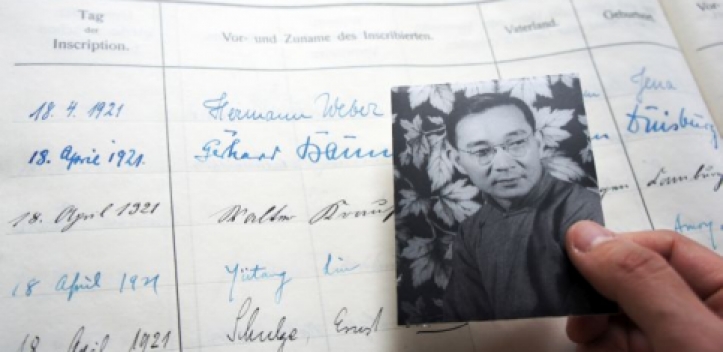 Tag der Inscription. Vor- und Zuname des Inscribierten. Vaterland. Geburtsort. Vor-
18. 4. 1921 Hermann Weber Jena
18. April 1921. Gerhard Duisburg
18. April 1921 Walter
18 April 1921 Yütang Lin Amoy
18 April 1921 Schulze, Ernst